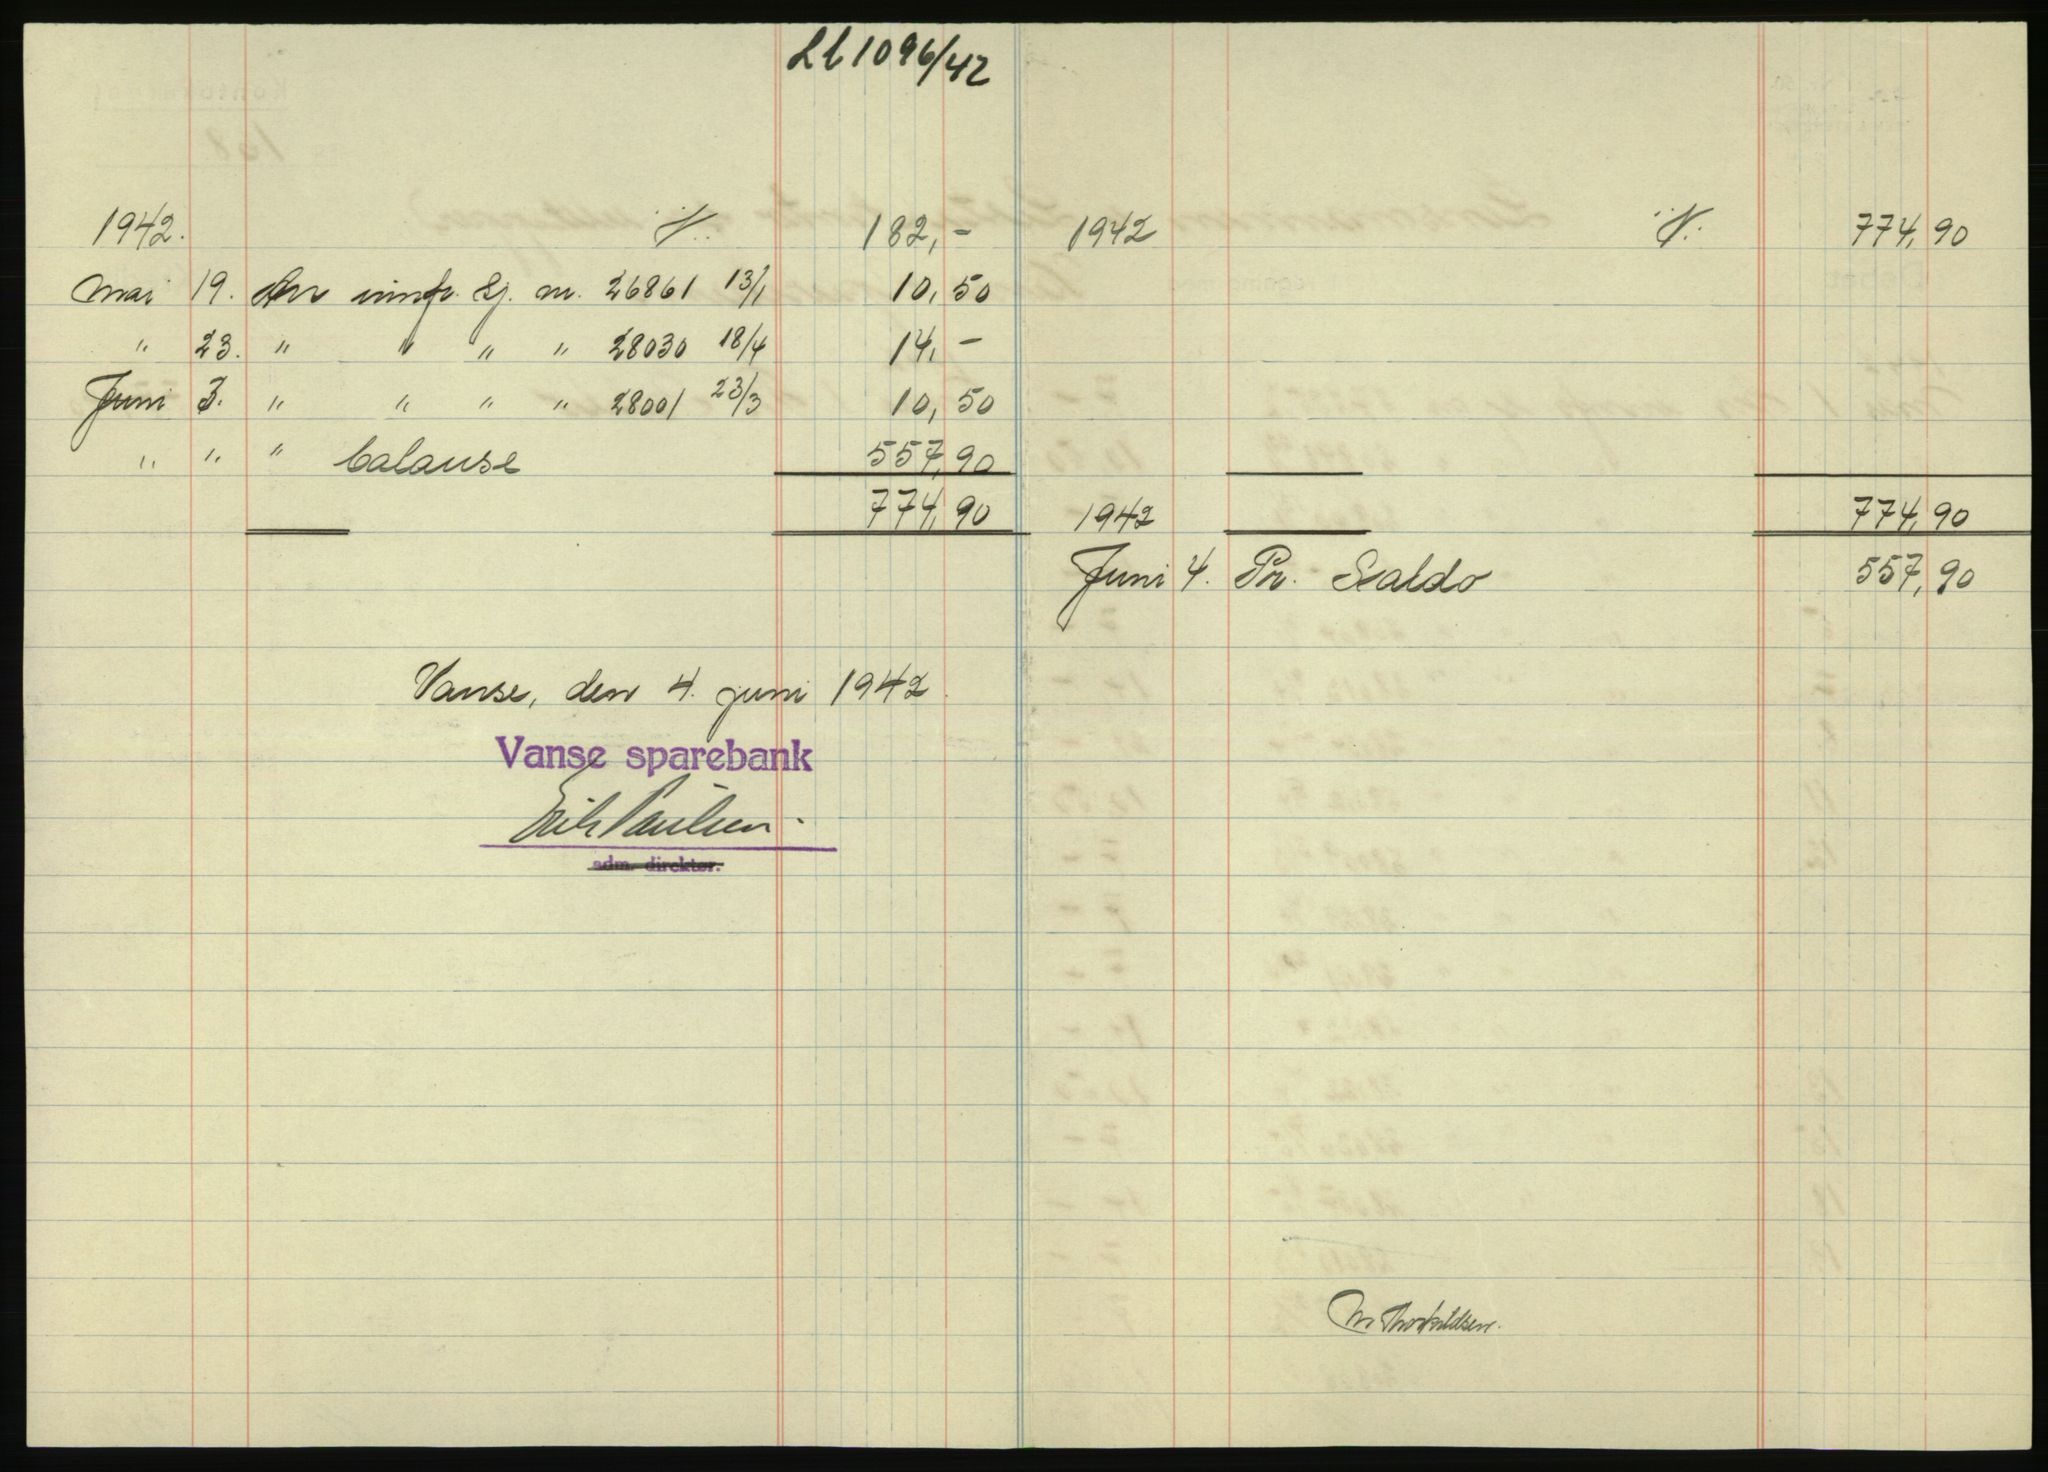 Lb 1096/42
1942. ·/. 182,-
Mai 19. An innfr. Lj. nr. 26861 13/1 10,50
" 23. " " " " 28030 18/4 14,-
Juni 3. " " " " 28001 23/3 10,50
" " " balanse 557,90
774,90
Vanse, den 4. juni 1942.
Vanse sparebank
Erik Paulsen.
adm. direktør.
1942 ·/. 774,90
1942 774,90
Juni 4. Pr. Saldo 557,90
M Thorkildsen.